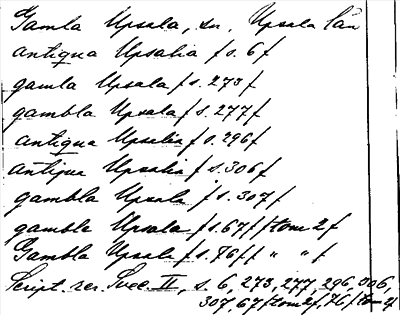 Gamla Upsala, sn. Upsala län
antiqua Upsalia / s. 6 /
gamla Upsala / s. 273 /
gambla Upsala / s. 277 /
antiqua Upsalia / s. 296 /
antiqua Upsalia / s. 306 /
gambla Upsala / s. 307 /
gambla Upsala / s. 67 / / tom 2 /
Gambla Upsala / s. 76 / / " " /
Script. rer. Svec. II, s. 6, 273, 277, 296, 306,
307, 67 / tom 2 /, 76 / tom 2 /